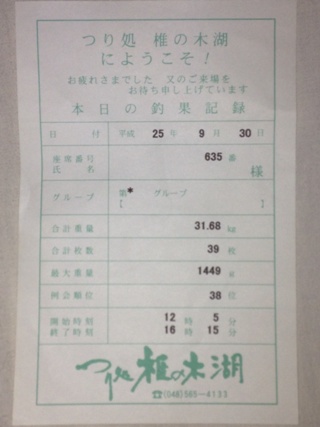 つり処 椎の木湖
にようこそ！
お疲れさまでした 又のご来場を
お待ち申し上げています
本日の釣果記録
日付 平成 25 年 9 月 30 日
座席番号 635 番
氏名 様
グループ 第* グループ
[ ]
合計重量 31.68 kg
合計枚数 39 枚
最大重量 1449 g
例会順位 38 位
開始時刻 12 時 5 分
終了時刻 16 時 15 分
つり処 椎の木湖
☎(048)565-4133